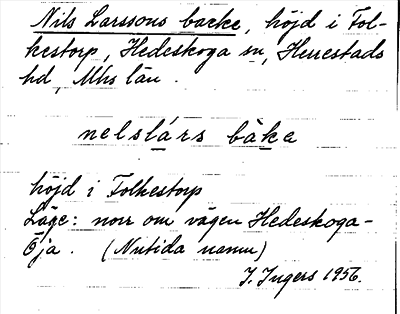 Nils Larssons backe, höjd i Fol-
kestorp, Hedeskoga sn, Herrestads
hd, Mhs län.
nelslárs bàka
höjd i Folkestorp
Läge: norr om vägen Hedeskoga-
Öja. (Nutida namn)
I. Ingers 1956.